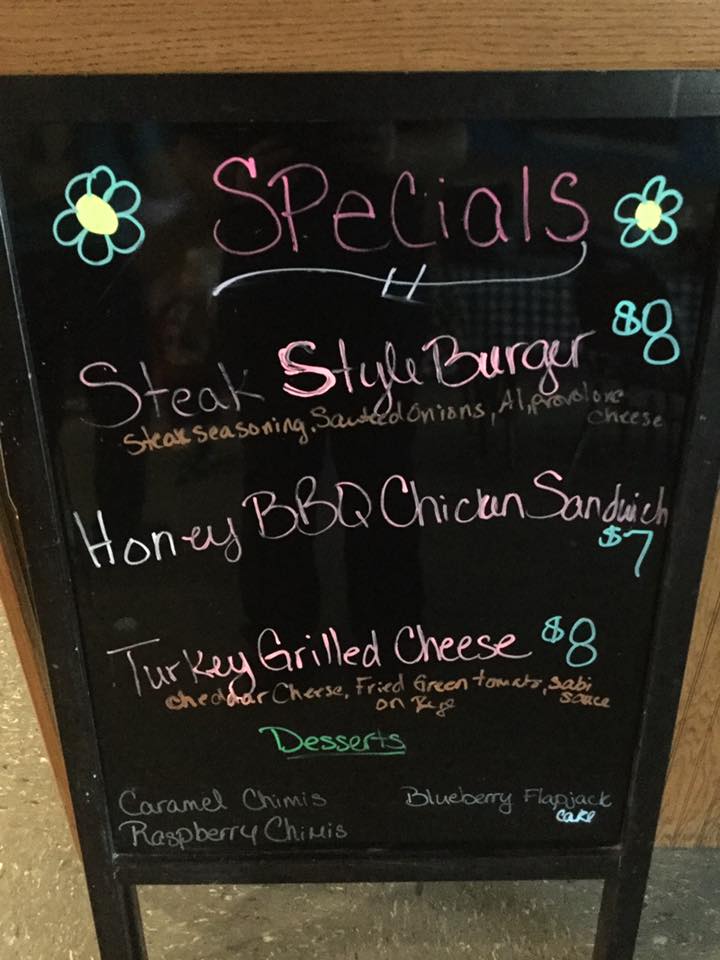 Specials
Steak Style Burger $8
Steak seasoning, Sauteed Onions, A1, provolone
cheese
Honey BBQ Chicken Sandwich
$7
Turkey Grilled Cheese $8
cheddar Cheese, Fried Green tomato, Sabi
on Rye sauce
Desserts
Caramel Chimis Blueberry Flapjack
cake
Raspberry Chimis